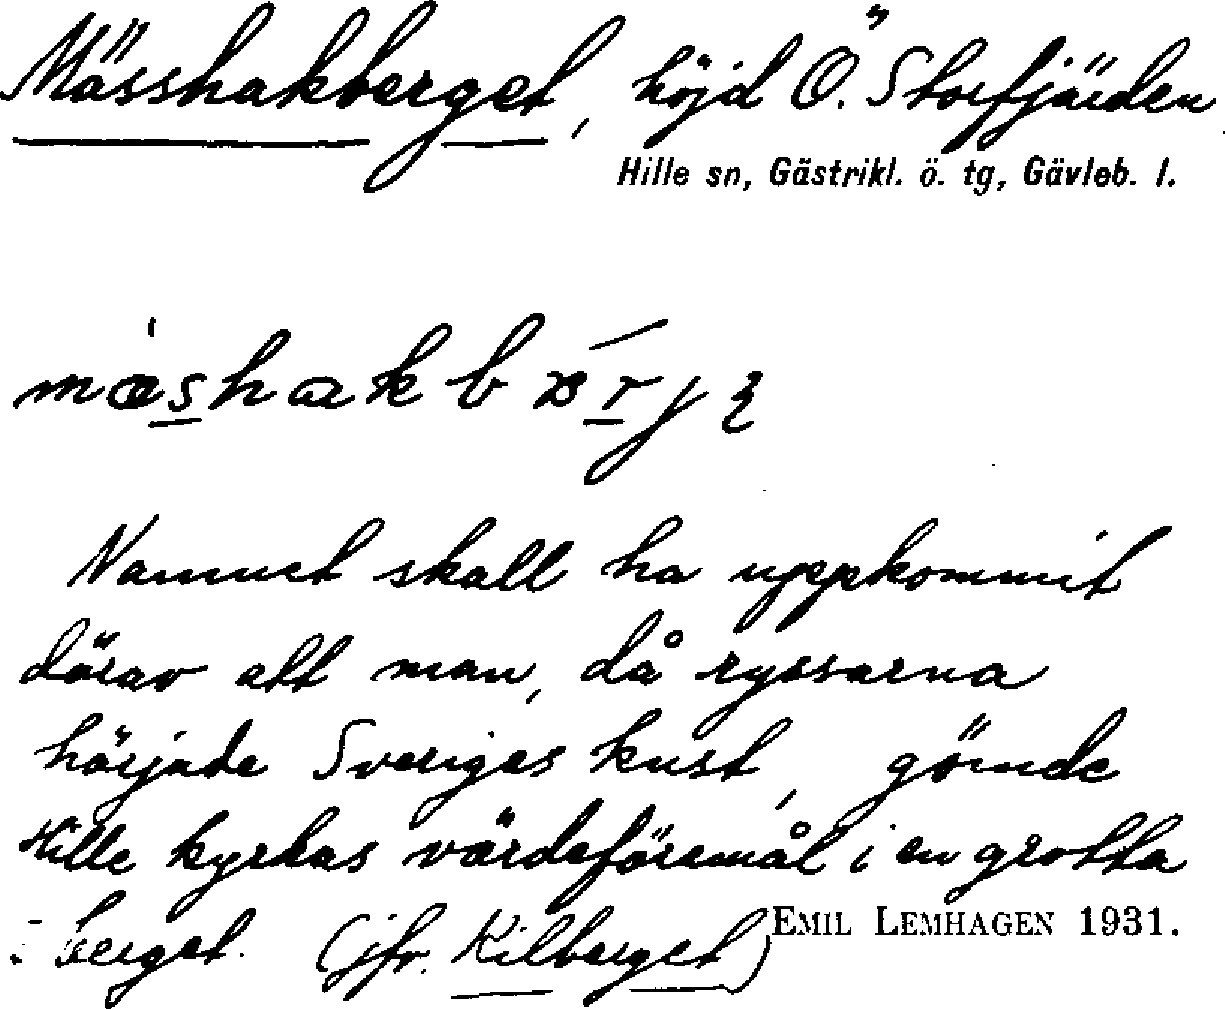 Mässhakberget, höjd Ö. Storfjärden
Hille sn, Gästrikl. ö. tg, Gävleb. l.
Namnet skall ha uppkommit
därav att man, då ryssarna
härjade Sveriges kust, gömde
Hille kyrkas värdeföremål i en grotta
i berget. (jfr. Kilberget)
EMIL LEMHAGEN 1931.